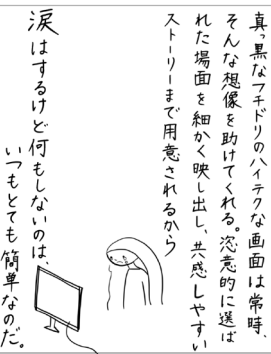 真っ黒なフチドリのハイテクな画面は常時、
そんな想像を助けてくれる。恣意的に選ば
れた場面を細かく映し出し、共感しやすい
ストーリーまで用意されるから
涙はするけど何もしないのは、
いつもとても簡単なのだ。